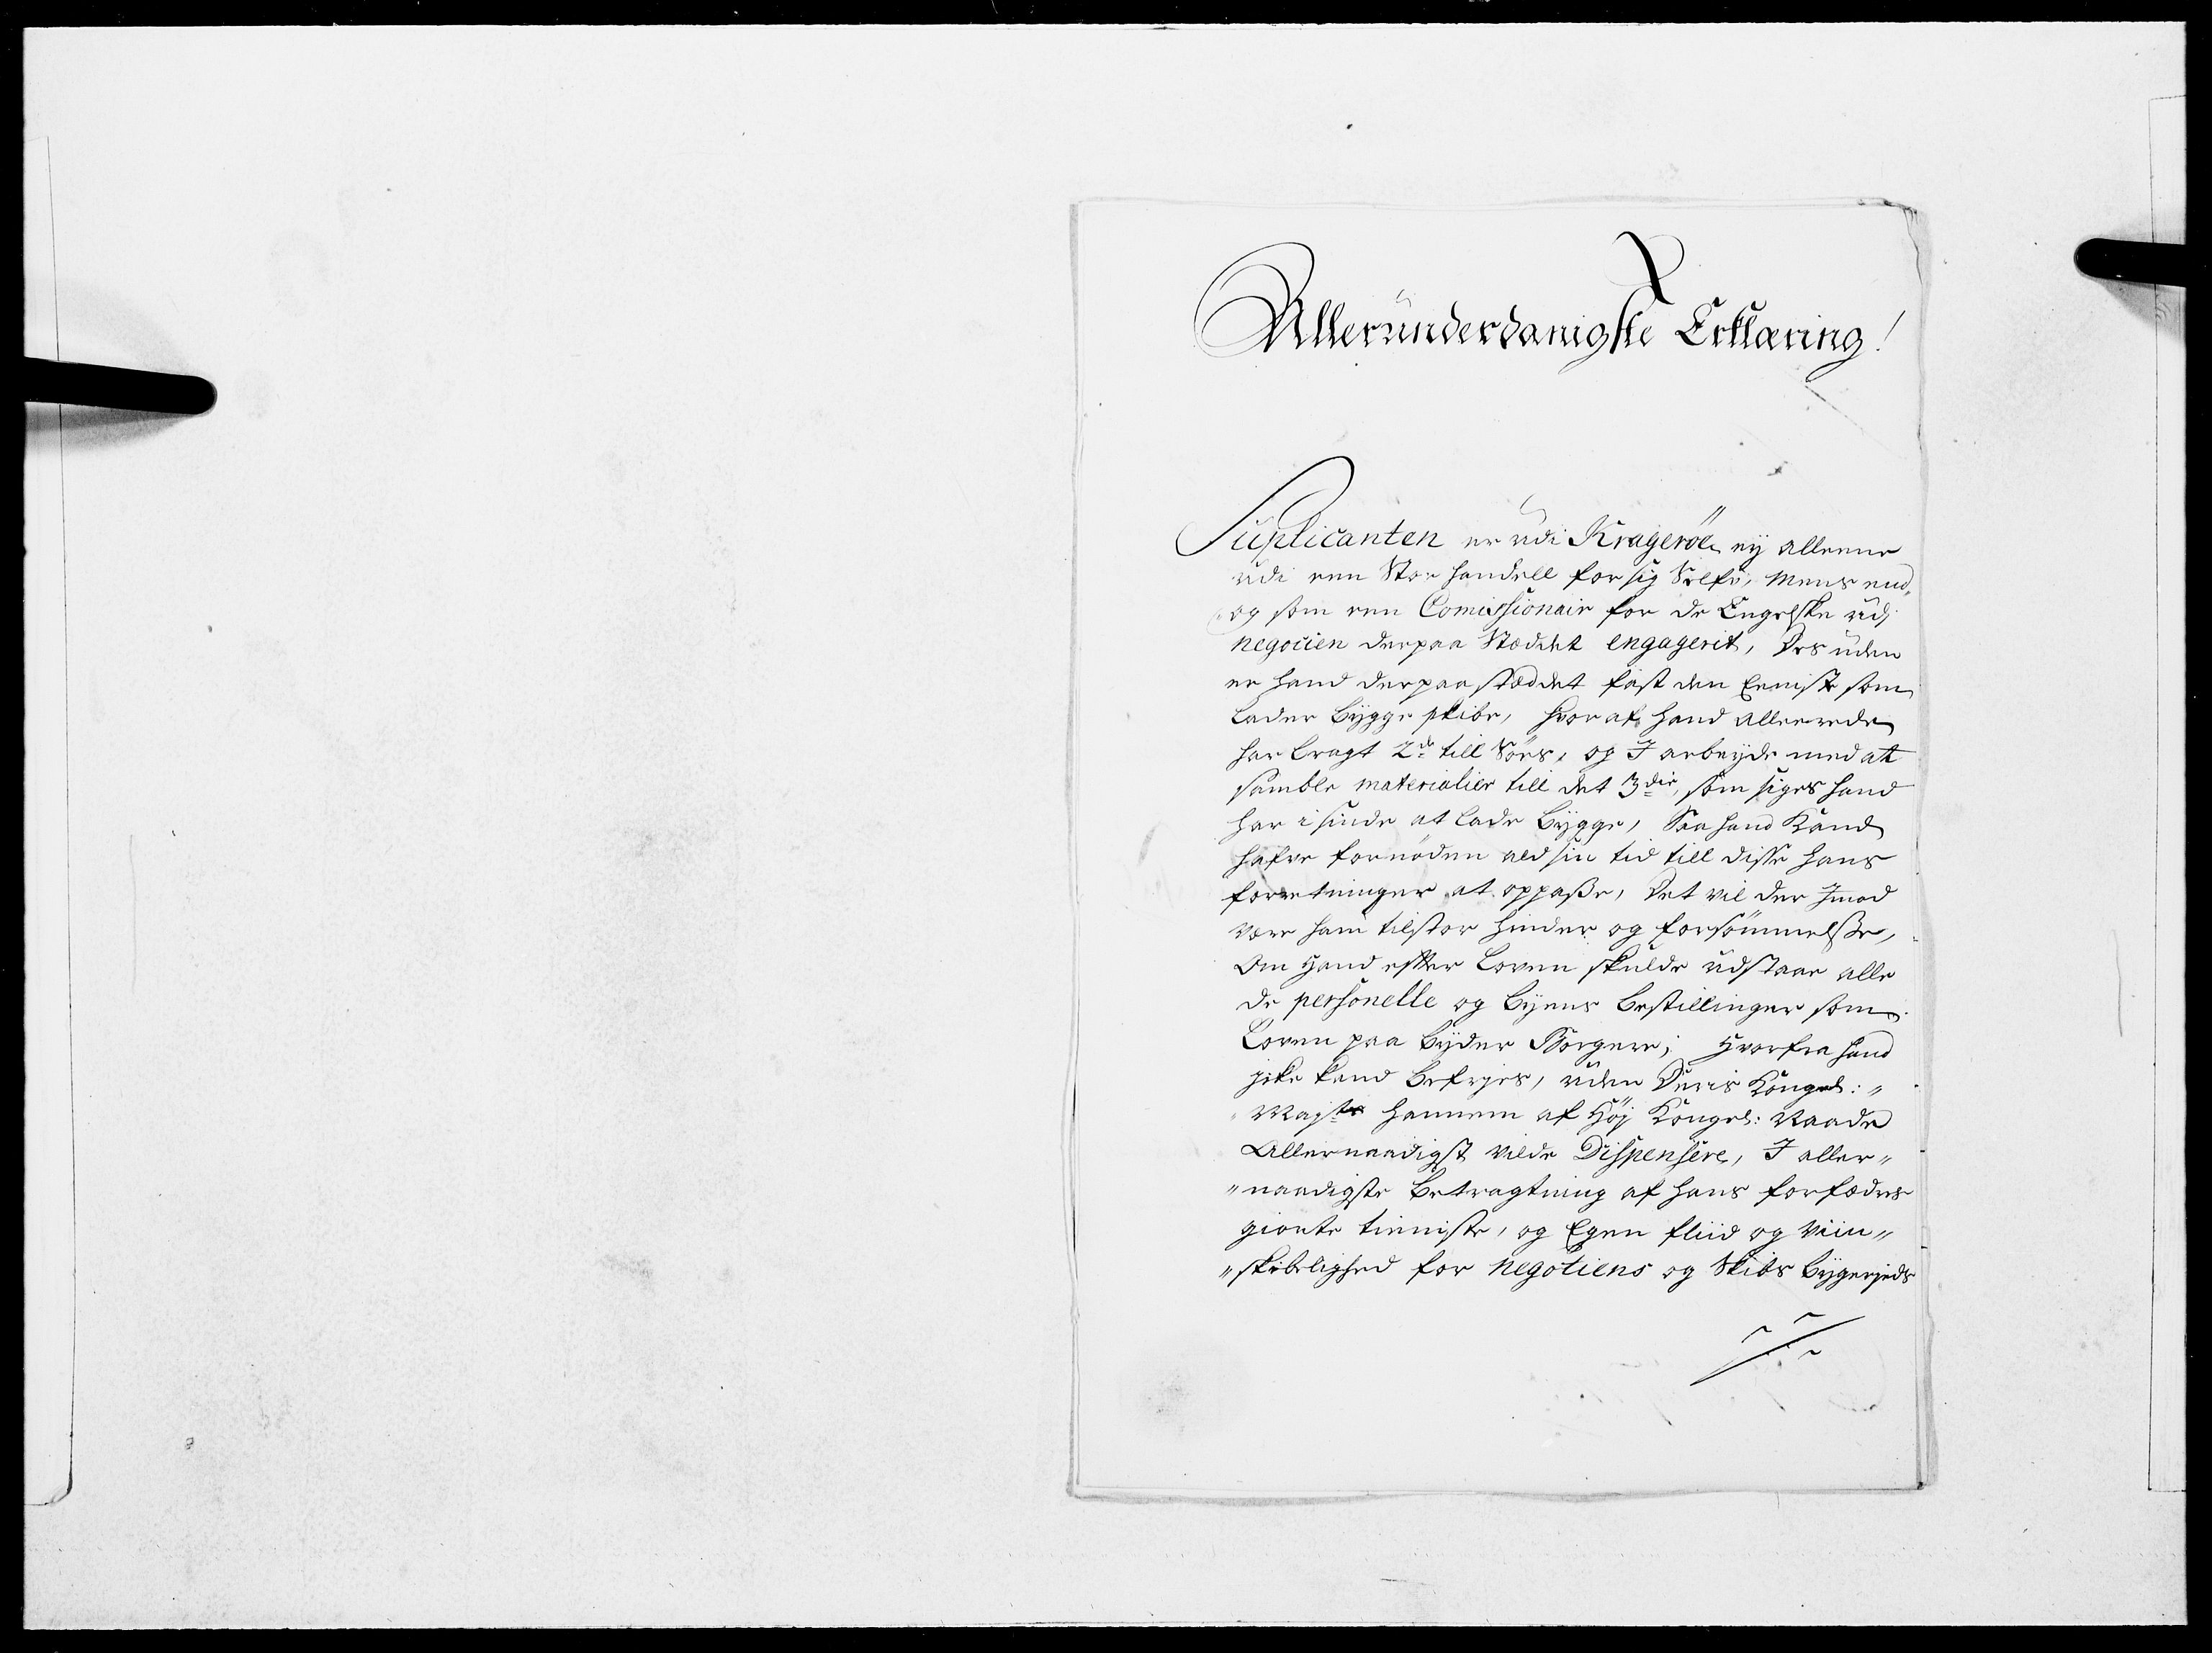 Alleründerdanigste Erklæring!
Suplicanten er udi Kragerøe ey alleene
udi een Stor handell for sig Selfv, Mens end,
og som een Comissionair for de Engelske udj
negocien derpaa Stæddet engagerit, Des uden
er hand derpaa stæddet fast den Eeniste som
lader bygge skibe, hvoraf hand allereede
har bragt 2de till Söes, og I arbeyde med at
samble materialier till det 3die, som siges hand
har i sinde at lade bygge, Saa hand Kand
hafve fornöden ald sin tid till disse hans
forretninger at oppasse, Det vil der Imod
være ham til stor hinder og forsömmelse,
Om Hand efter Loven skulde udstaae alle
de personelle og byens bestillinger som
Loven paa byder Borgere; Hvorfra hand
icke kand befries, uden Deris Kongel:"
Majts hannem af Höj Kongel: Naade
Allernaadigst vilde Dispensere, I aller"
"naadigste betragtning af hans forfædres
giorte tienniste, og Egen fliid og Viin"
"skibelighed for negotiens og Skibs byggeriets